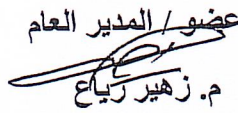 عضو / المدير العام
م. زهير زياع